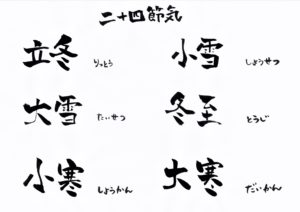 二十四節気
立冬 りっとう 小雪 しょうせつ
大雪 たいせつ 冬至 とうじ
小寒 しょうかん 大寒 だいかん